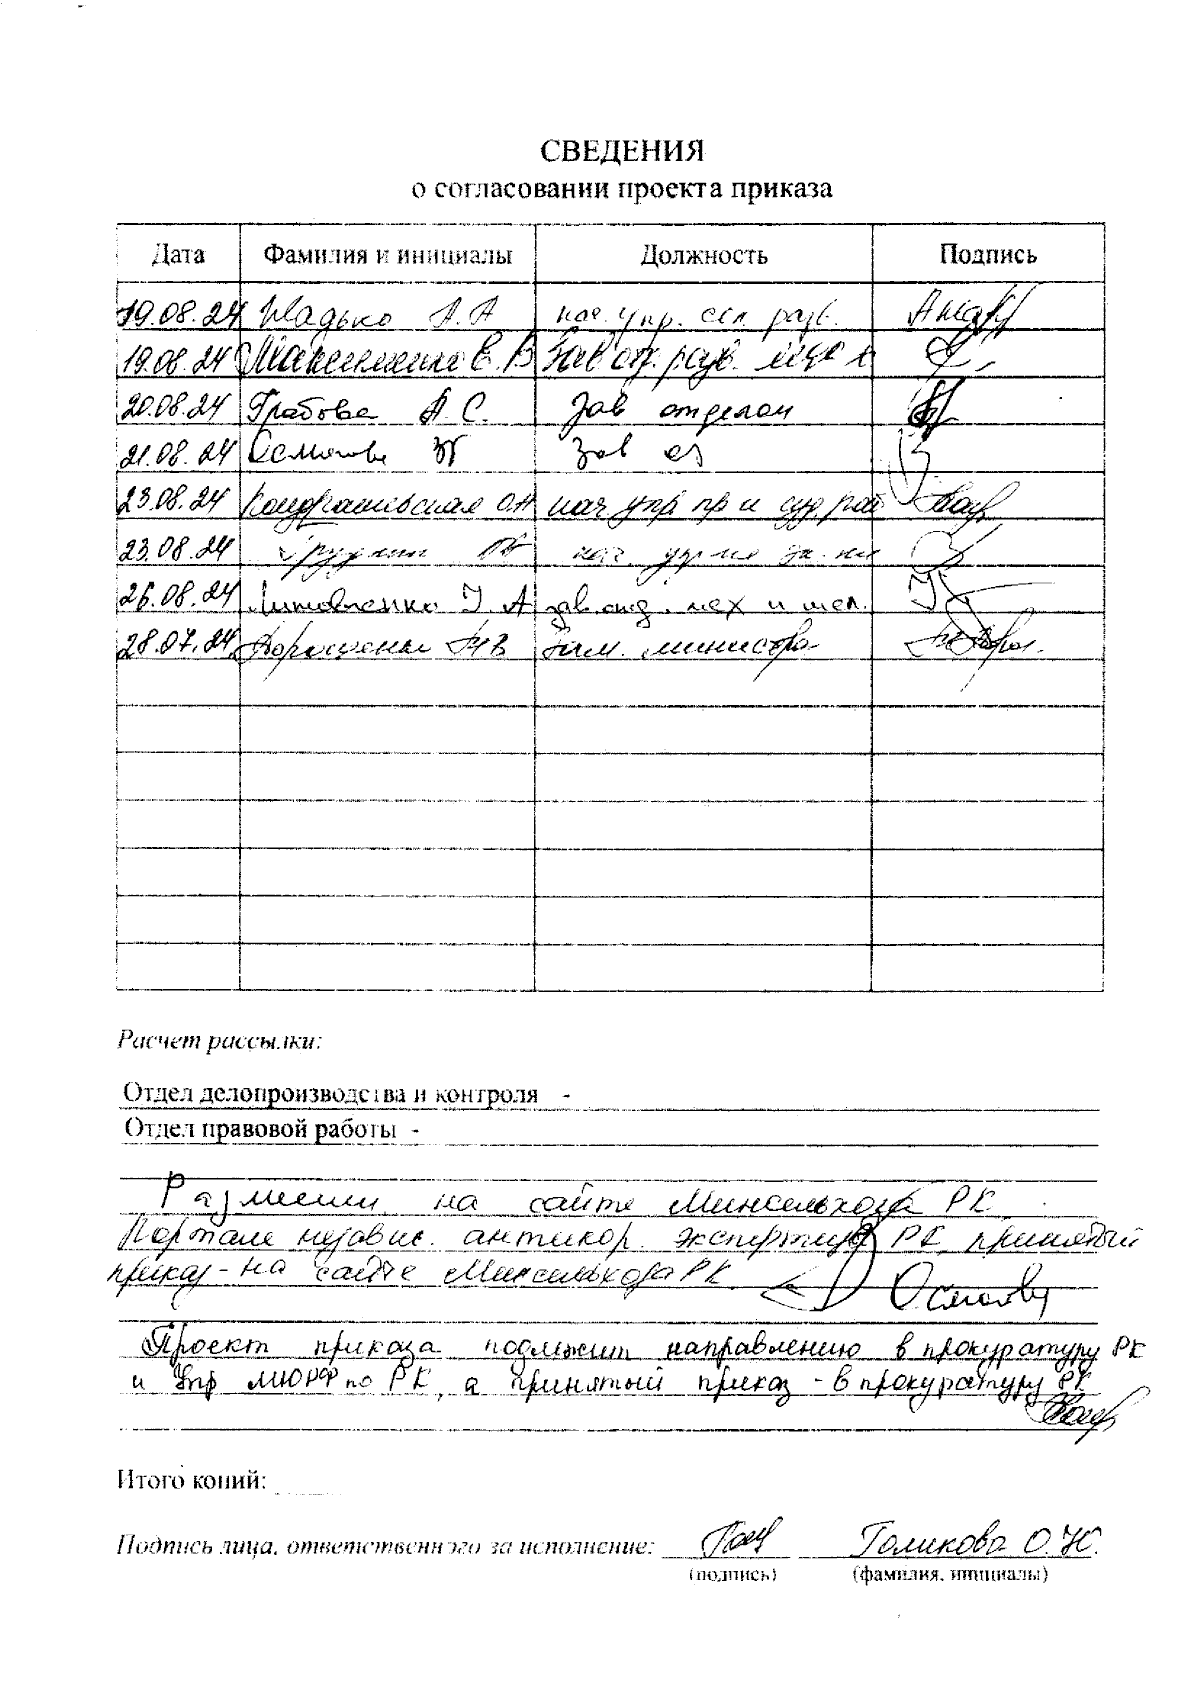 СВЕДЕНИЯ
о согласовании проекта приказа
Дата Фамилия и инициалы Должность Подпись
19.08.24 Шадько А.А нач. упр. сел. разв.
19.08.24 Максименко Е.В Зав отд. разв.
20.08.24 Грабова А С. Зав отделом
21.08.24 Осмолова Зав от
23.08.24 нач упр пр и суд раб
23.08.24 нач.
26.08.24 Литовченко А зав отд. мех и мел.
28.07.24 Дорошенко Зам. министра
Расчет рассылки:
Отдел делопроизводства и контроля -
Отдел правовой работы -
на сайте Минсельхоза РК
Портале независ. антикор. экспертизы РК, принятый
приказ - на сайте Минсельхоза РК
Проект приказа подлежит направлению в прокуратуру РК
и Упр МЮ РФ по РК, а принятый приказ - в прокуратуру РК
Итого копий:
Подпись лица, ответственного за исполнение: Голикова О.Ю.
(подпись) (фамилия, инициалы)